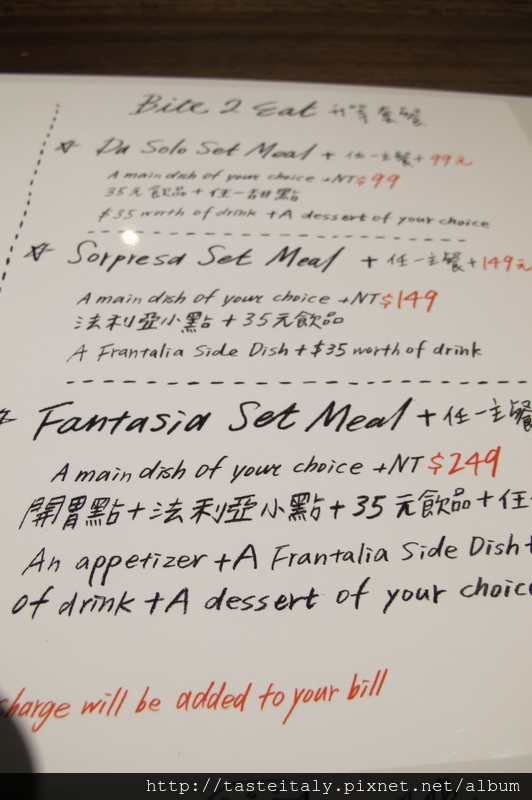 Bite 2 Eat 升等套餐
☆ Da Solo Set Meal + 任一主餐 + 99元
A main dish of your choice +NT$99
35元飲品 + 任一甜點
$35 worth of drink +A dessert of your choice
☆ Sorpresa Set Meal + 任一主餐 + 149元
A main dish of your choice +NT$149
法利亞小點 + 35元飲品
A Frantalia Side Dish + $35 worth of drink
Fantasia Set Meal + 任一主餐
A main dish of your choice +NT $249
開胃點 + 法利亞小點 + 35元飲品 + 任
An appetizer + A Frantalia Side Dish +
of drink + A dessert of your choice
charge will be added to your bill
http://tasteitaly.pixnet.net/album